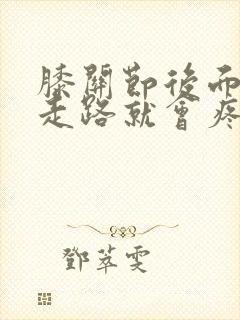 膝關節後而
走路就會疼
鄧萃雯